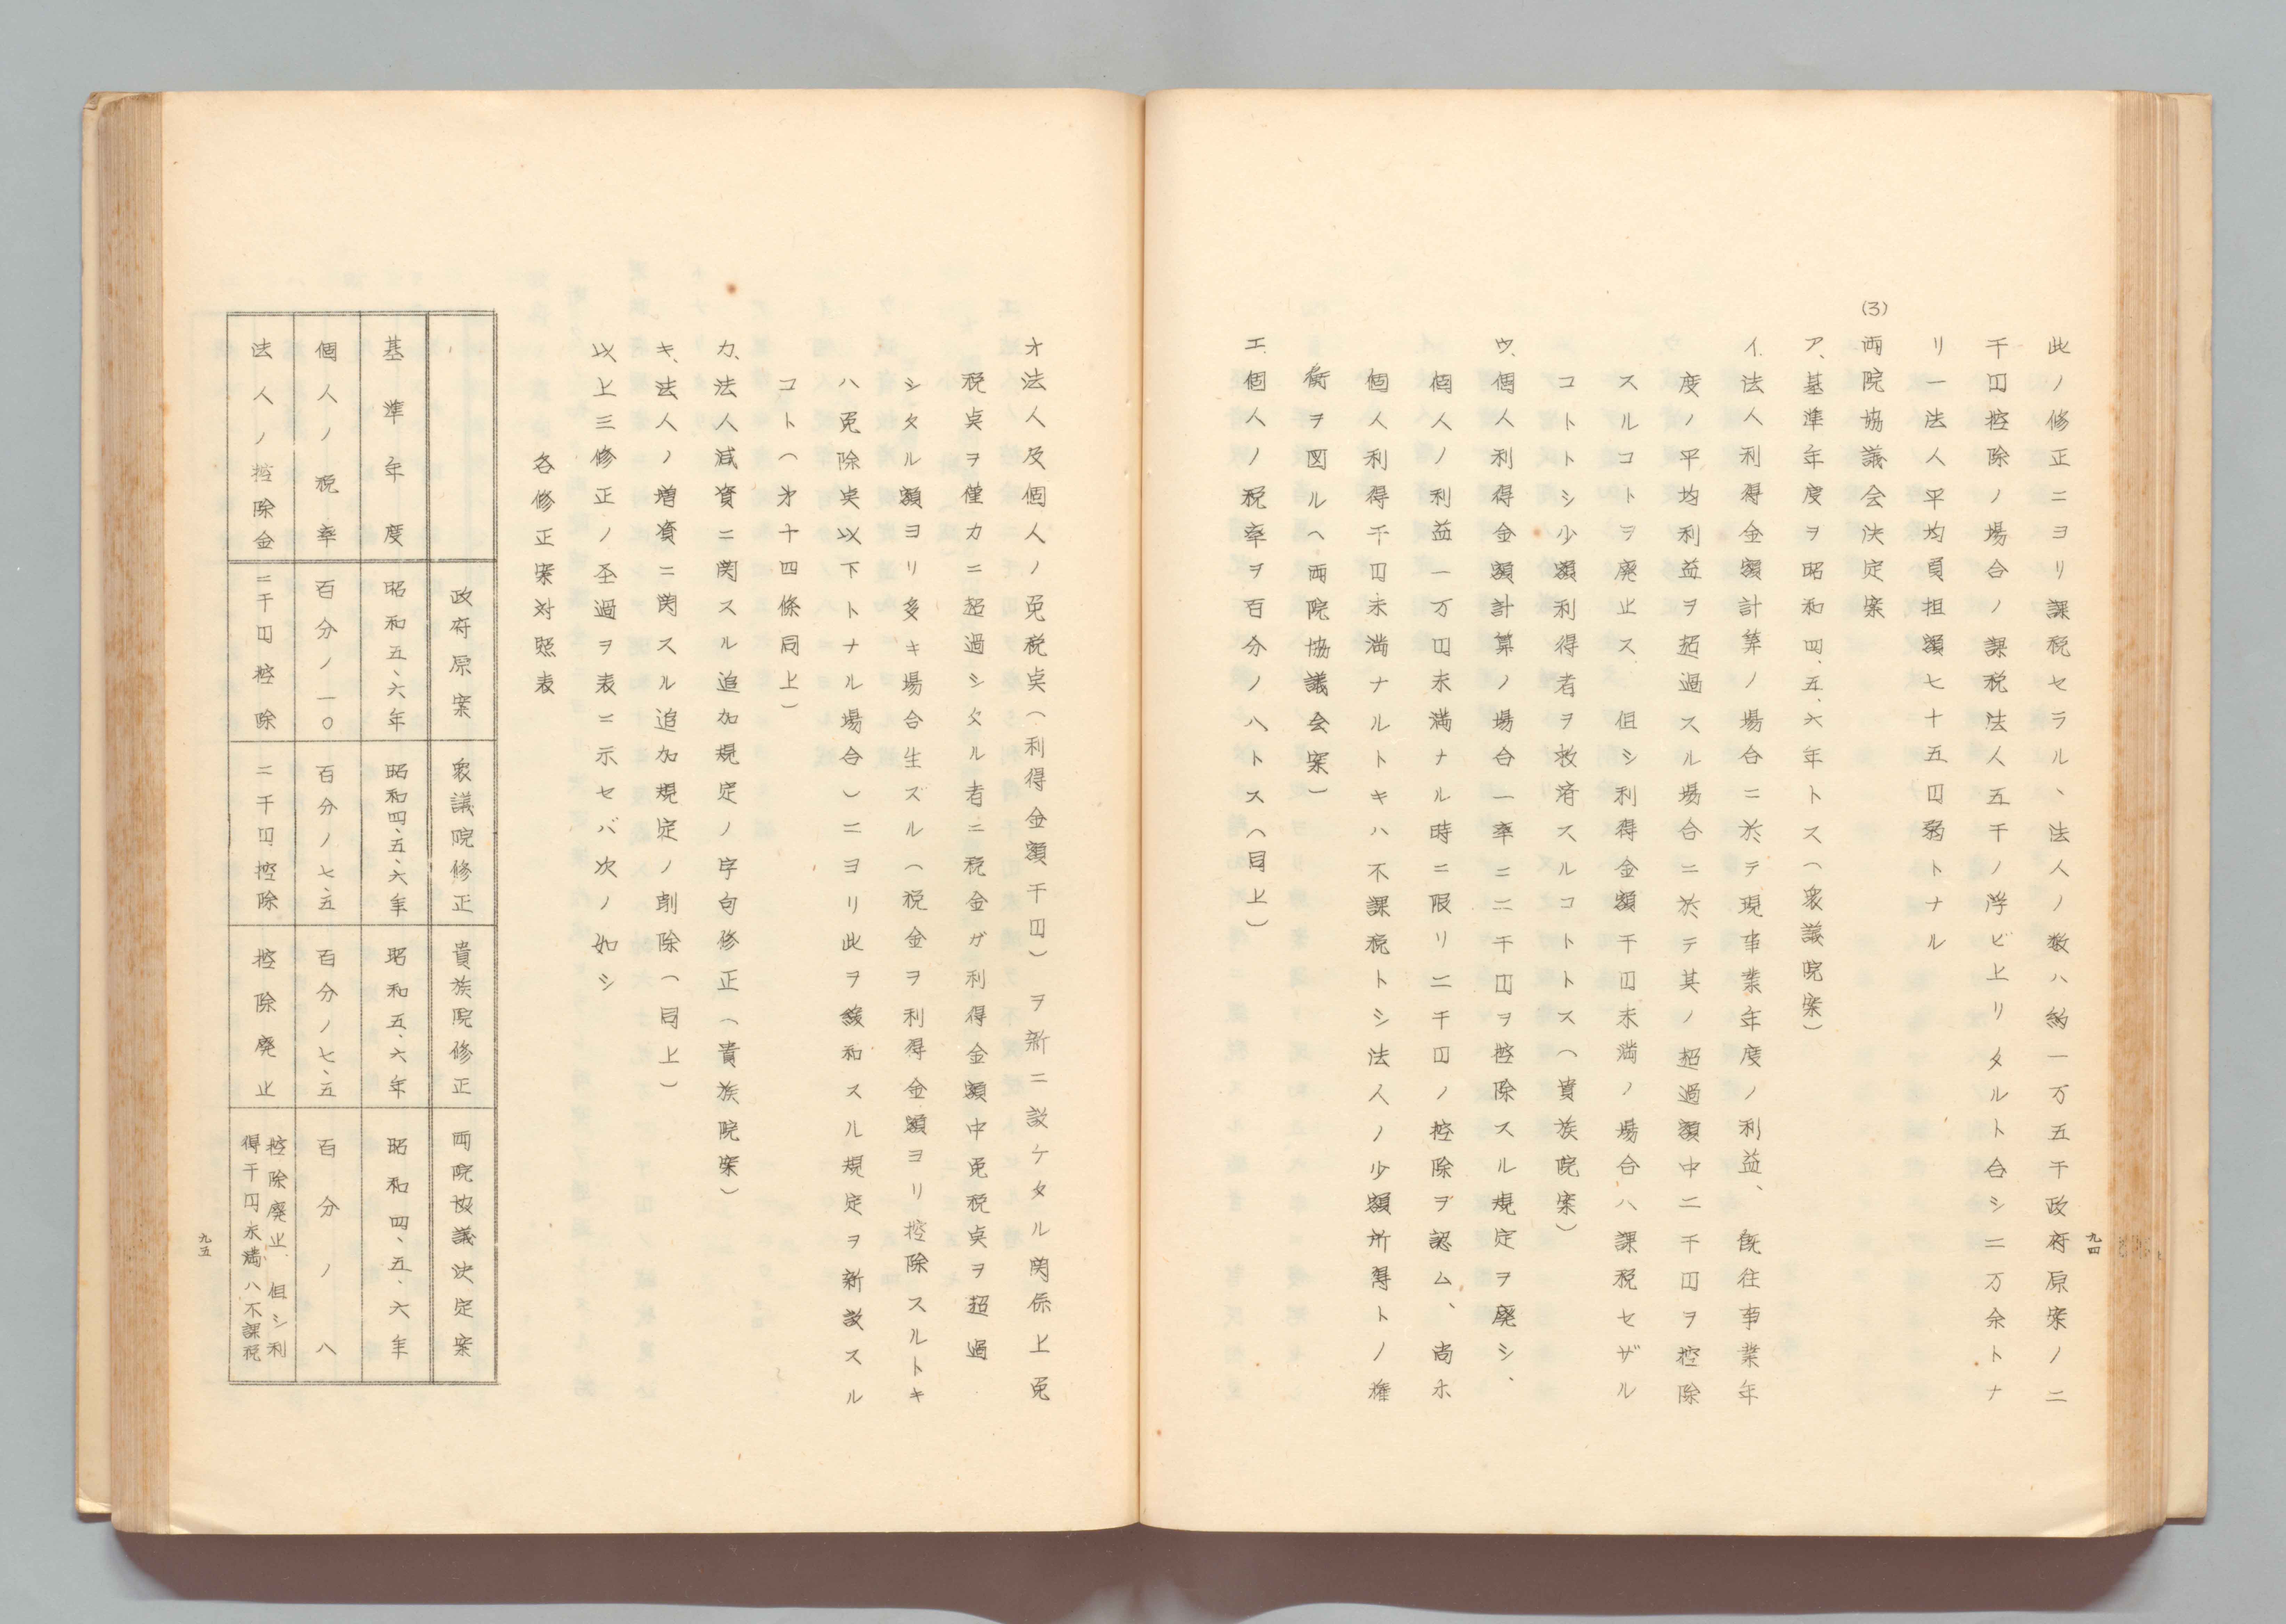 此ノ修正ニヨリ課税セラル、法人ノ数ハ約一万五千政府原案ノ二
千円控除ノ場合ノ課税法人五千ノ浮ビ上リタルト合シ二万余トナ
リ一法人平均負担額七十五円弱トナル
(3) 両院協議会決定案
ア、基準年度ヲ昭和四、五、六年トス(衆議院案)
イ、法人利得金額計算ノ場合ニ於テ現事業年度ノ利益、既往事業年
度ノ平均利益ヲ超過スル場合ニ於テ其ノ超過額中二千円ヲ控除
スルコトヲ廃止ス 但シ利得金額千円未満ノ場合ハ課税セザル
コトトシ少額利得者ヲ救済スルコトトス(貴族院案)
ウ、個人利得金額計算ノ場合一率ニ二千円ヲ控除スル規定ヲ廃シ、
個人ノ利益一万円未満ナル時ニ限リ二千円ノ控除ヲ認ム、尚ホ
個人利得千円未満ナルトキハ不課税トシ法人ノ少額所得トノ権
衡ヲ図ル(両院協議会案)
エ、個人ノ税率ヲ百分ノ八トス(同上)
九四
オ法人及個人ノ免税点(利得金額千円)ヲ新ニ設ケタル関係上免
税点ヲ僅カニ超過シタル者ニ税金ガ利得金額中免税点ヲ超過
シタル額ヨリ多キ場合生ズル(税金ヲ利得金額ヨリ控除スルトキ
ハ免除点以下トナル場合)ニヨリ此ヲ緩和スル規定ヲ新設スル
コト(才十四條同上)
カ、法人減資ニ関スル追加規定ノ字句修正(貴族院案)
キ、法人ノ増資ニ関スル追加規定ノ削除(同上)
以上三修正ノ圣過ヲ表ニ示セバ次ノ如シ
各修正案対照表
政府原案 衆議院修正 貴族院修正 両院協議決定案
基準年度 昭和五、六年 昭和四、五、六年 昭和五、六年 昭和四、五、六年
個人ノ税率 百分ノ一〇 百分ノ七、五 百分ノ七、五 百分ノ八
法人ノ控除金 二千円控除 二千円控除 控除廃止 控除廃止 但シ利
得千円未満ハ不課税
九五